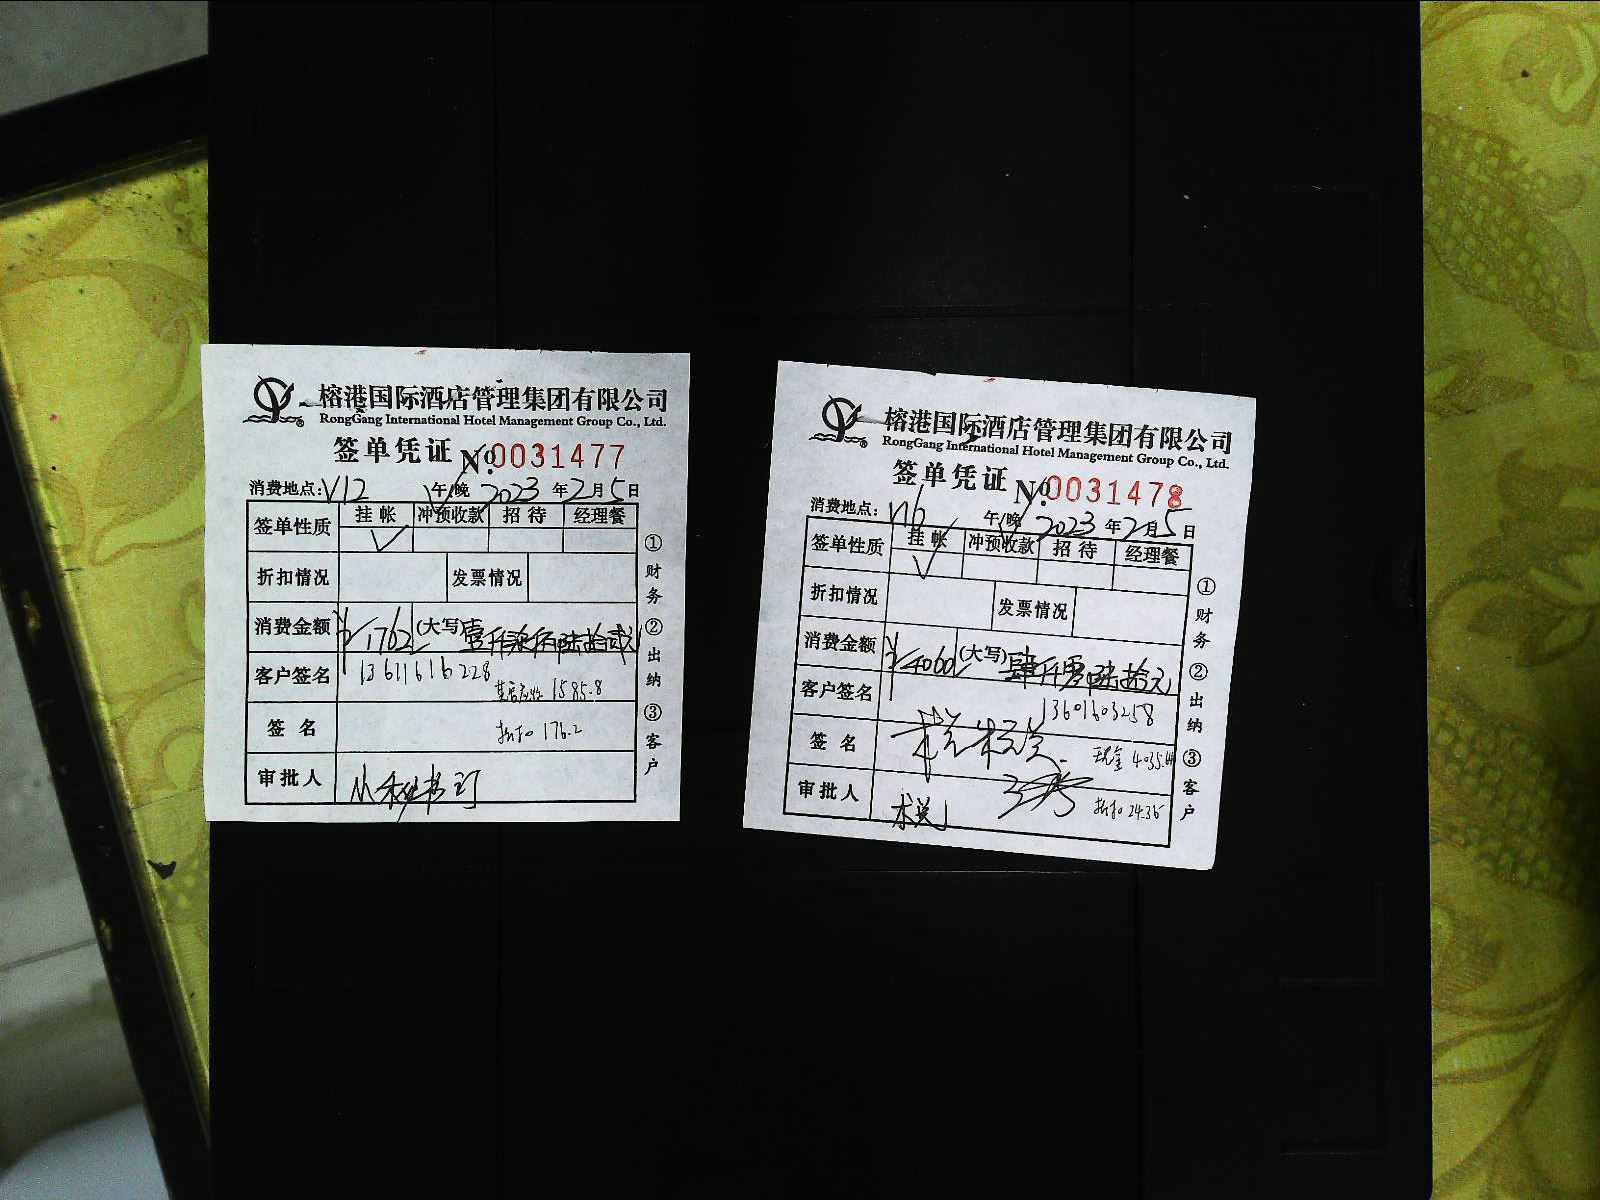 榕港国际酒店管理集团有限公司
RongGang International Hotel Management Group Co., Ltd.
签单凭证 No.0031477
消费地点:V12 午/晚 2023年2月5日
签单性质 挂帐 冲预收款 招待 经理餐
✓
折扣情况 发票情况
消费金额 ¥1762 (大写)壹仟柒佰陆拾贰
客户签名 13611616228
1585.8
签名 折扣 176.2
审批人
①财务 ②出纳 ③客户
榕港国际酒店管理集团有限公司
RongGang International Hotel Management Group Co., Ltd.
签单凭证 No.0031478
消费地点:V16 午/晚 2023年2月5日
签单性质 挂帐 冲预收款 招待 经理餐
✓
折扣情况 发票情况
消费金额 ¥4060 (大写)肆仟零陆拾元
客户签名 13601603258
签名 现金
审批人 折扣 24.36
①财务 ②出纳 ③客户